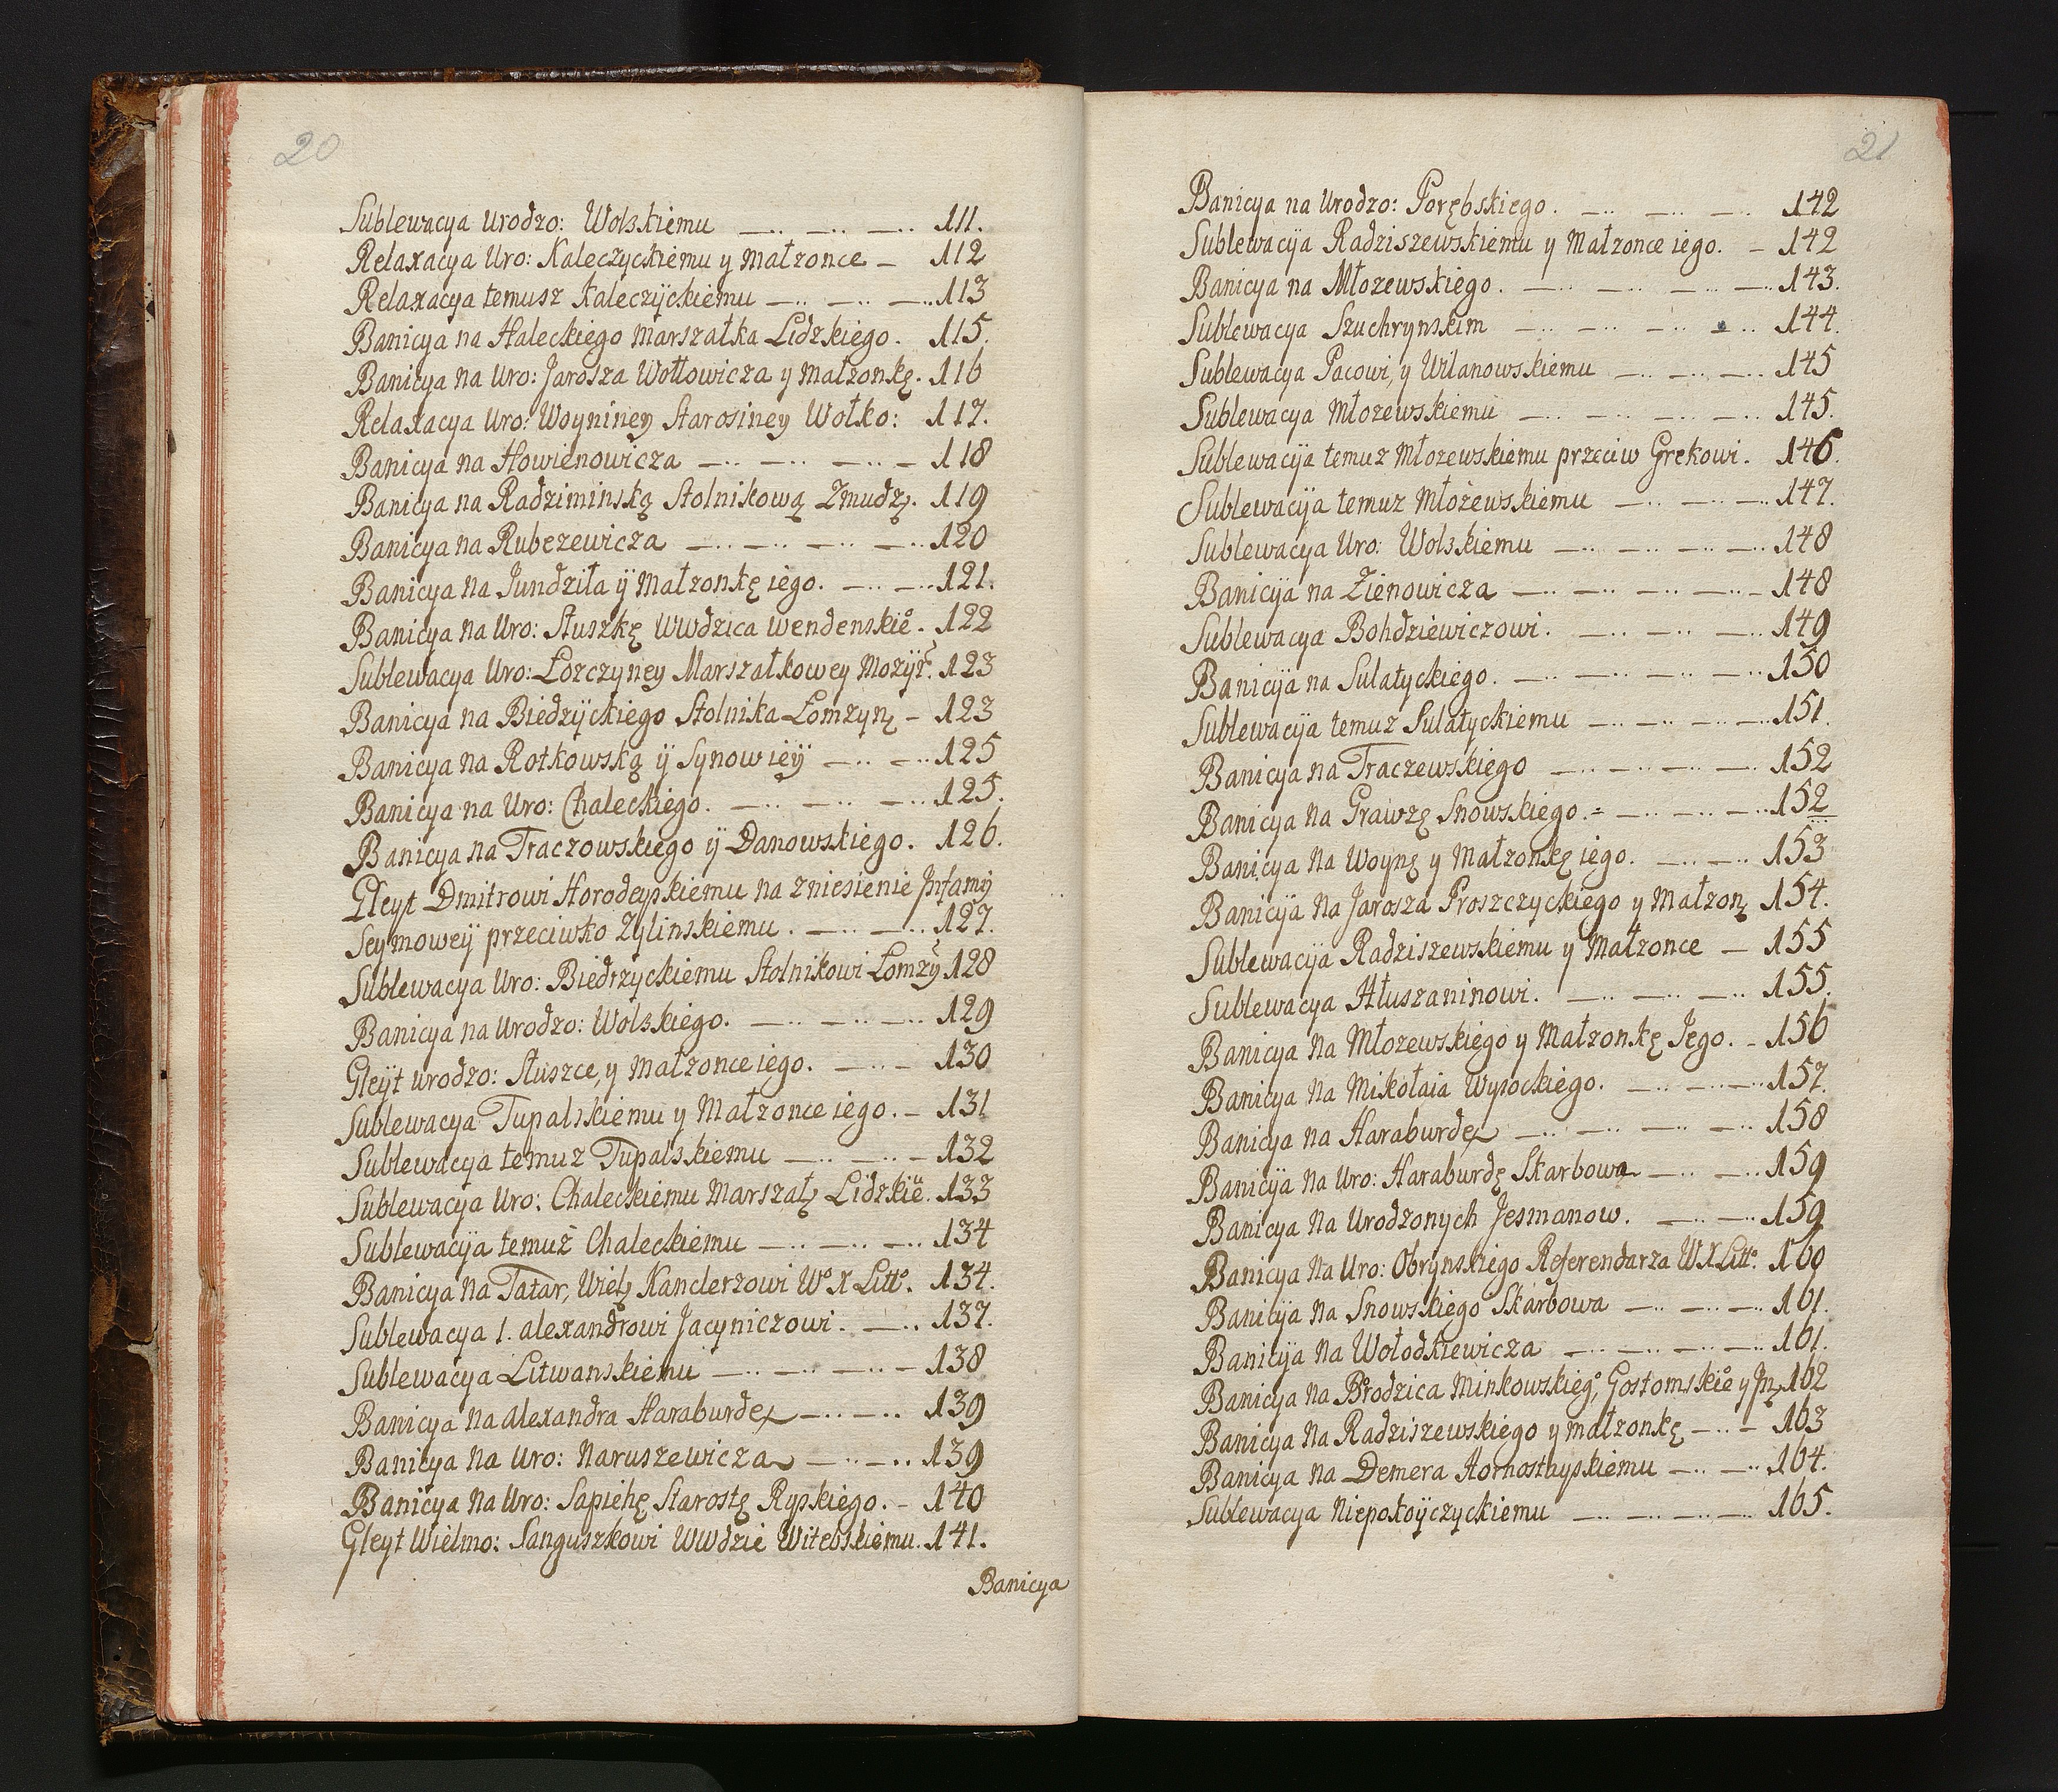 20
Sublewacya urodzo: Wolskiemu —.. —.. —.. 111.
Relaxacya Uro: Kaleczyckiemu y Małzonce — 112
Relaxacya temusz Kaleczÿckiemu —.. —.. —.. 113
Banicya na Haleckiego Marszałka Lidzkiego. 115.
Banicya na Uro: Jarosza Wołłowicza y małzonkę. 116
Relaxacya Uro: Woyniney Starosiney Wołko: 117.
Banicya na Howienowicza —.. —.. —.. — 118
Banicya na Radziminską Stolnikową Zmudz. 119
Banicya na Rubezewicza —.. —.. —.. —.. 120
Banicya na Jundziła ÿ Małzonkę iego. —.. —.. 121.
Banicya na Uro: Słuszkę Wwdzica wendenskie͛. 122
Sublewacya Uro: Lozczyney Marszałkowey Mozÿr. 123
Banicya na Biedzÿckiego Stolnika Lomzyn — 123
Banicya na Rotkowską ÿ Synow ieÿ —.. —.. 125
Banicya na Uro: Chaleckiego. —.. —.. —.. 125.
Banicya na Traczowskiego ÿ Danowskiego. 126.
Gleyt Dmitrowi Horodeyskiemu na zniesienie Jnfamÿ
Seymoweÿ przeciwko Zylinskiemu. —.. —.. 127.
Sublewacya Uro: Biedrzyckiemu Stolnikowi Lomzÿ 128
Banicya na urodzo: Wolskiego. —.. —.. —.. 129
Gleÿt urodzo: Słuszce, y małzonce iego. —.. — 130
Sublewacya Tupalskiemu y Małzonce iego. — 131
Sublewacya temuz Tupalskiemu —.. —.. — 132
Sublewacya Uro: Chaleckiemu Marszał Lidzkie. 133
Sublewacÿa temuż Chaleckiemu —.. —.. —.. 134
Banicya na Tatar, Wiel Kanclerzowi Wº X Littº. 134.
Sublewacya 1. alexandrowi Jacyniczowi. —.. 137.
Sublewacya Litwanskiemu —.. —.. —.. — 138
Banicya na alexandra Haraburdę —.. —.. 139
Banicya na Uro: Naruszewicza —.. —.. 139
Banicya na Uro: Sapiehę Starostę Ryskiego. — 140
Gleyt Wielmo: Sanguszkowi Wwdzie Witebskiemu. 141.
Banicya
21
Banicya na Urodzo: Porębskiego. —.. —.. —.. 142
Sublewacÿa Radziszewskiemu y Małzonce iego. — 142
Banicya na Młozewskiego. —.. —.. —.. —.. 143.
Sublewacya Szuchrynskim —.. —.. —.. —.. 144.
Sublewacya Pacowi, y Wilanowskiemu —.. —.. —.. 145
Sublewacya Młozewskiemu —.. —.. —.. —.. 145.
Sublewacÿa temuz Młozewskiemu przeciw Grekowi. 146.
Sublewacÿa temuz Młożewskiemu —.. —.. —.. 147.
Sublewacya Uro: Wolskiemu —.. —.. —.. —.. 148
Banicÿa na Zienowicza —.. —.. —.. —.. — 148
Sublewacya Bohdziewiczowi. —.. —.. —.. 149
Banicÿa na Sulatyckiego. —.. —.. —.. —.. 150
Sublewacÿa temuz Sulatyckiemu —.. —.. —.. —.. 151.
Banicya na Traczewskiego —.. —.. —.. —.. 152
Banicya na Grawzę Snowskiego. = —.. —.. —.. 152
Banicya na Woynę y Małzonkę iego. —.. —.. 153
Banicÿa na Jarosza Proszczyckiego y Małzon 154.
Sublewacÿa Radziszewskiemu y Małzonce — 155
Sublewacya Hłuszaninowi. —.. —.. —.. 155.
Banicya na Młozewskiego y Małzonkę Jego. — 156
Banicya na Mikołaia Wysockiego. —.. —.. —.. 157.
Banicya na Haraburdę —.. —.. —.. —.. 158
Banicÿa na Uro: Haraburdę Skarbowa —.. —.. 159
Banicya na Urodzonych Jesmanow. —.. —.. 159
Banicya na Uro: Obrynskiego Referendarza W X Littº. 160
Banicÿa na Snowskiego Skarbowa —.. —.. —.. 161.
Banicÿa na Wołodkiewicza —.. —.. —.. —.. 161.
Banicya na Brodzica Minkowskiegº, Gostomskie y Jn 162
Banicya na Radziszewskiego y małzonkę —.. — 163
Banicya na Demera Hornostayskiemu —.. —.. 164.
Sublewacya Niepokoÿczyckiemu —.. —.. —.. —.. 165.